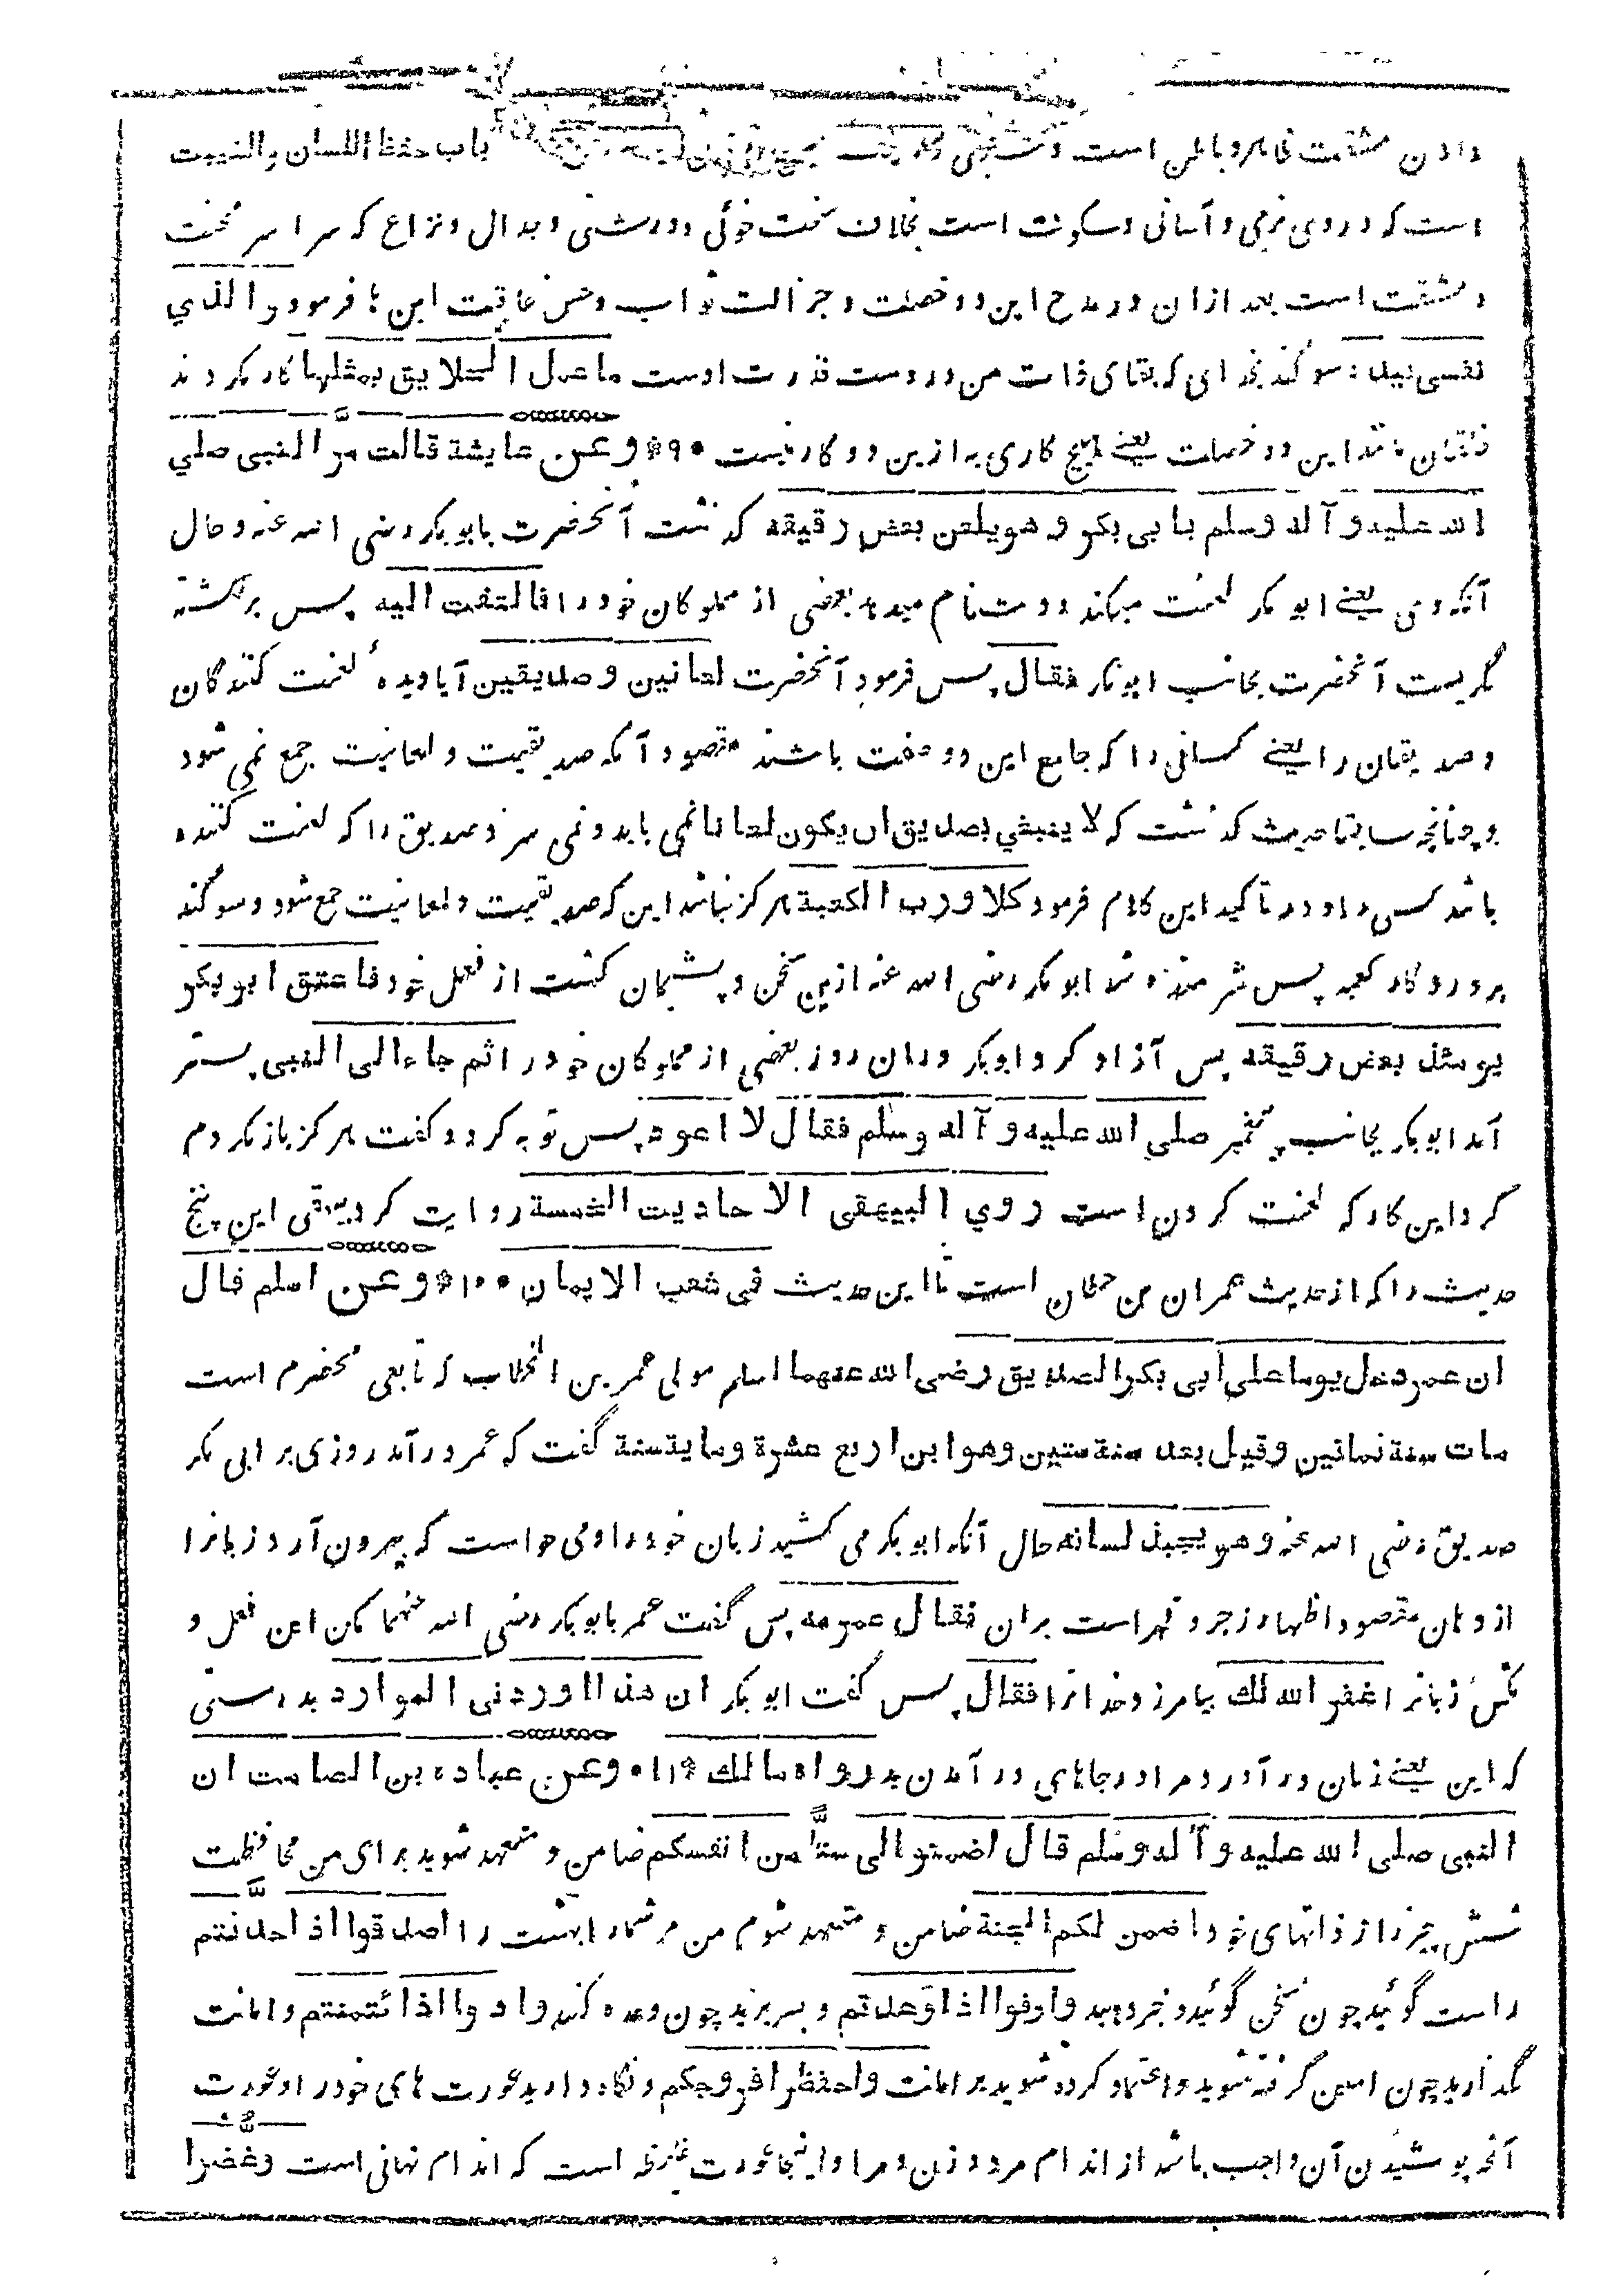 باب حفظ اللسان والغیبت
دادن مشقت ظاهر و باطن است
است که در وی نرمی و آسانی و سکونت است بخلاف سخت خوئی و درشتی و جدال و نزاع که سراسر محنت
و مشقت است بعد ازان در مدح این دو خصلت و جزالت ثواب و حسن عاقبت این ها فرمود والذي
نفسی بیده سوگند بخدای که بقای ذات من در دست قدرت اوست ما عمل الخلایق بمثلها کار نکردند
خلقان مانند این دو خصلت یعنے هیچ کاری به ازین دو کار نیست * ۹ * وعن عایشة قالت مر النبی صلي
الله علیه و آله وسلم بابی بکر و هو یلعن بعض رقیقه که گذشت آنحضرت بابوبکر رضی الله عنه و حال
آنکه وی یعنے ابوبکر لعنت میکند و دشنام میدهد بعضی از مملوکان خود را فالتفت الیه پس برگشته
نگریست آنحضرت بجانب ابوبکر فقال پس فرمود آنحضرت لعانین وصدیقین آیا دیدهٔ لعنت کنندگان
و صدیقان را یعنے کسانی را که جامع این دو صفت باشند مقصود آنکه صدیقیت و لعانیت جمع نمی شود
و چنانچه سابقا حدیث گذشت که لا ینبغي بصدیق ان یکون لعانا نمی باید و نمی سزد صدیق را که لعنت کننده
باشد کسی را و در تاکید این کلام فرمود کلا و رب الکعبة هرگز نباشد این که صدیقیت و لعانیت جمع شود و سوگند
پروردگار کعبه پس شرمنده شد ابوبکر رضی الله عنه ازین سخن و پشیمان گشت از فعل خود فاعتق ابوبکر
یومئذ بعض رقیقه پس آزاد کرد ابوبکر دران روز بعضی از مملوکان خود را ثم جاء الی النبی پستر
آمد ابوبکر بجانب پیغمبر صلی الله علیه و آله وسلم فقال لا اعود پس توبه کرد و گفت هرگز باز نگردم
گرد این کار که لعنت کردن است روي البیهقی الاحادیث الخمسة روایت کرد بیهقی این پنج
حدیث را که از حدیث عمران بن حطان است تا این حدیث فی شعب الایمان * ۱۰ * وعن اسلم قال
ان عمر دخل یوما علی ابی بکر الصدیق رضی الله عنهما اسلم مولی عمر بن الخطاب که تابعی مخضرم است
مات سنة ثمانین وقیل بعد سنة ستین وهو ابن اربع عشرة ومایة سنة گفت که عمر در آمد روزی بر ابی بکر
صدیق رضی الله عنه و هو یجبذ لسانه حال آنکه ابوبکر می کشید زبان خود را و می خواست که بیرون آرد زبانرا
از دهان مقصود اظهار زجر و قهر است بران فقال عمر مه پس گفت عمر بابوبکر رضی الله عنهما مکن این فعل و
مکش زبانرا غفر الله لک بیامرزد خدا ترا فقال پس گفت ابوبکر ان هذا اوردنی الموارد بدرستی
که این یعنے زبان در آورد مرا در جاهای در آمدن بد رواه مالک * ۱۱ * وعن عباده بن الصامت ان
النبی صلی الله علیه و آله وسلم قال اضمنوا لی ستا من انفسکم ضامن و متعهد شوید برای من محافظت
شش چیز را از ذاتهای خود اضمن لکم الجنة ضامن و متعهد شوم من مر شما را بهشت را اصدقوا اذا حدثتم
راست گوئید چون سخن گوئید و خبر دهید واوفوا اذا وعدتم و بسر برید چون وعده کنید وادوا اذا ائتمنتم و امانت
بگذارید چون امین گرفته شوید و اعتماد کرده شوید بر امانت واحفظوا فروجکم و نگاه دارید عورت های خود را و عورت
آنچه پوشیدن آن واجب باشد از اندام مرد و زن و مراد اینجا عورت غلیظه است که اندام نهانی است وغضوا